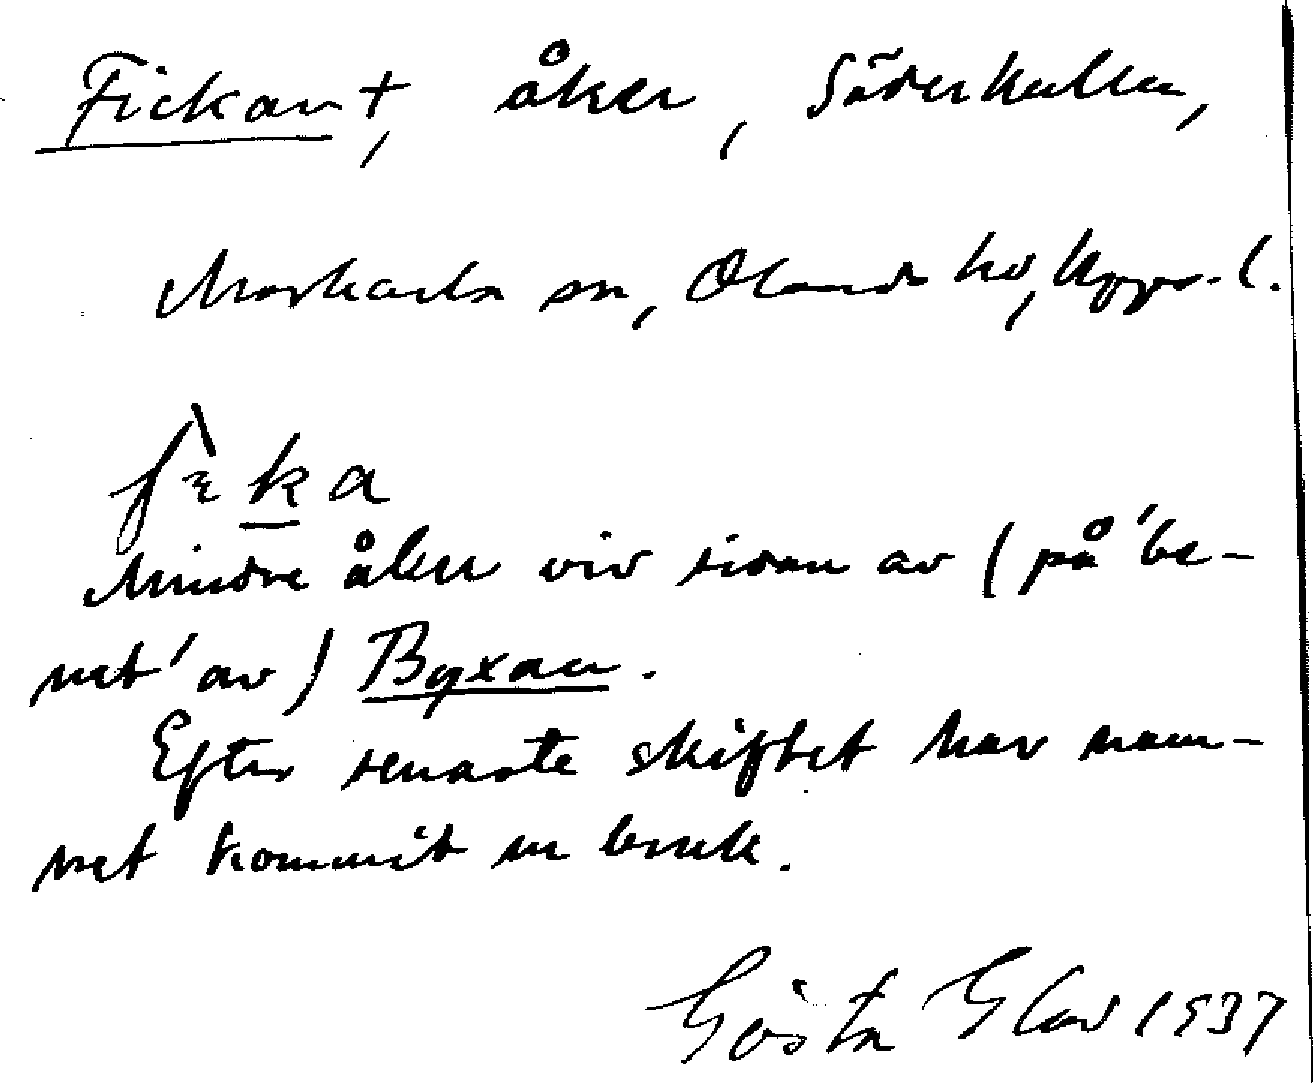 Fickan †, åker, Söderkullen,
Morkarla sn, Olands hd, Upps. l.
fìka
Mindre åker vid sidan av (på 'be-
net' av) Byxan.
Efter senaste skiftet har nam-
net kommit ur bruk.
Gösta Glad 1937